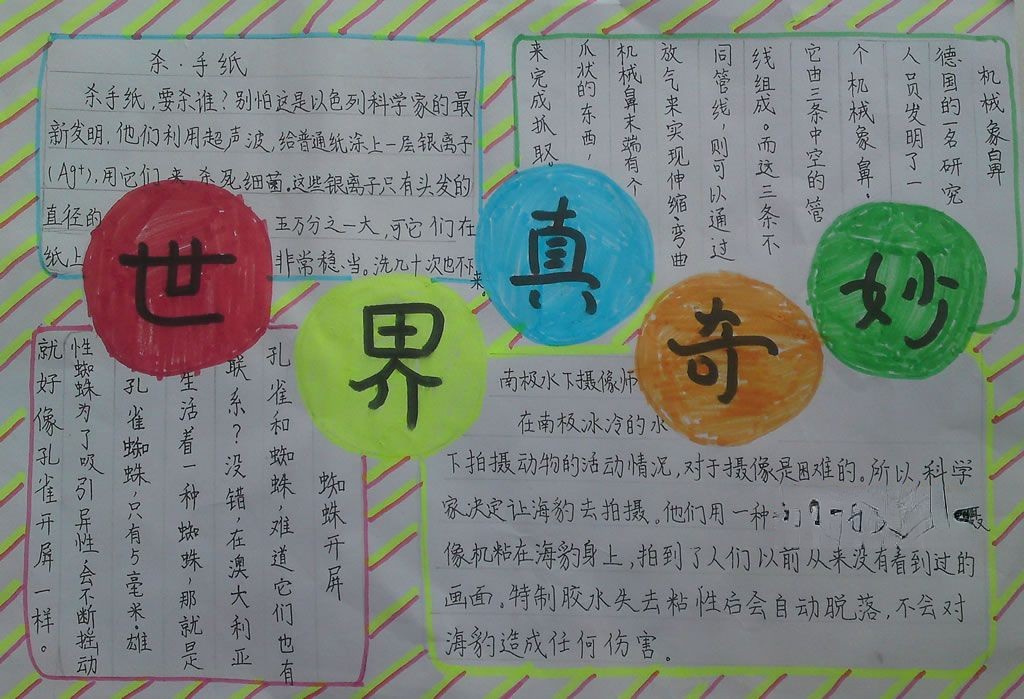 世界真奇妙
杀·手纸
杀手纸,要杀谁?别怕这是以色列科学家的最
新发明,他们利用超声波,给普通纸涂上一层银离子
(Ag+),用它们来杀死细菌.这些银离子只有头发的
直径的五万分之一大,可它们在
纸上非常稳当。洗几十次也不下
来。
机械象鼻
德国的一名研究
人员发明了一
个机械象鼻.
它由三条中空的管
线组成。而这三条不
同管线,则可以通过
放气来实现伸缩.弯曲
机械鼻末端有个
爪状的东西,
来完成抓取
蜘蛛开屏
孔雀和蜘蛛,难道它们也有
联系?没错,在澳大利亚
生活着一种蜘蛛,那就是
孔雀蜘蛛,只有5毫米.雄
性蜘蛛为了吸引异性,会不断摇动
就好像孔雀开屏一样。
南极水下摄像师
在南极冰冷的水
下拍摄动物的活动情况,对于摄像是困难的。所以,科学
家决定让海豹去拍摄。他们用一种
像机粘在海豹身上,拍到了人们以前从来没有看到过的
画面。特制胶水失去粘性后会自动脱落,不会对
海豹造成任何伤害。